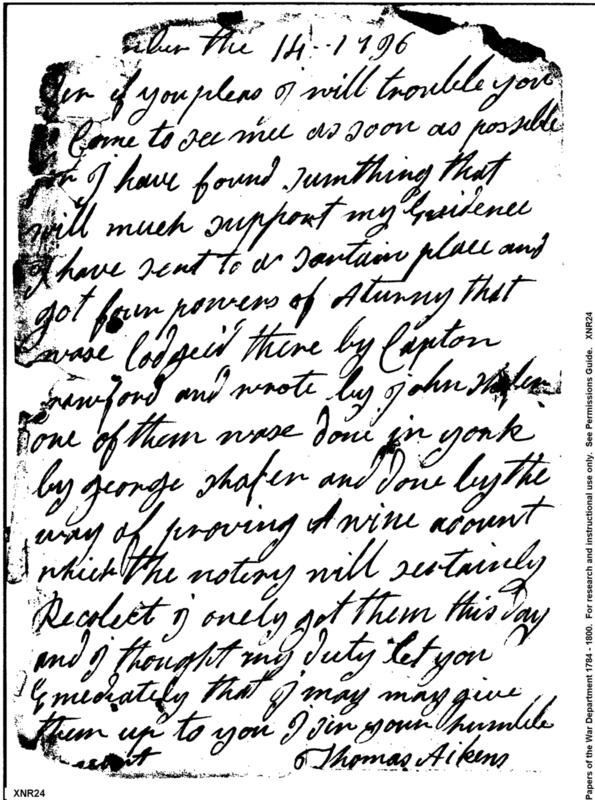 mber the 14--1796
Sir if you pleas I will trouble you
Come to see mee as soon as possible
for I have found sumthing that
will much support my Evidence
I have sent to a sartain place and
got four powers of Aturny that
wase lodgeid there by Capton
Crawford and wrote by John shafer
one of them wase done in york
by george shafer and done by the
way of proving A wine acount
which the notery will sertainly
Recolect I onely got them this Day
and I thought my duty let you
Emediately that I may may give
them up to you I Sir your humble
servent Thomas Aikens
XNR24
Papers of the War Department 1784 - 1800. For research and instructional use only. See Permissions Guide. XNR24